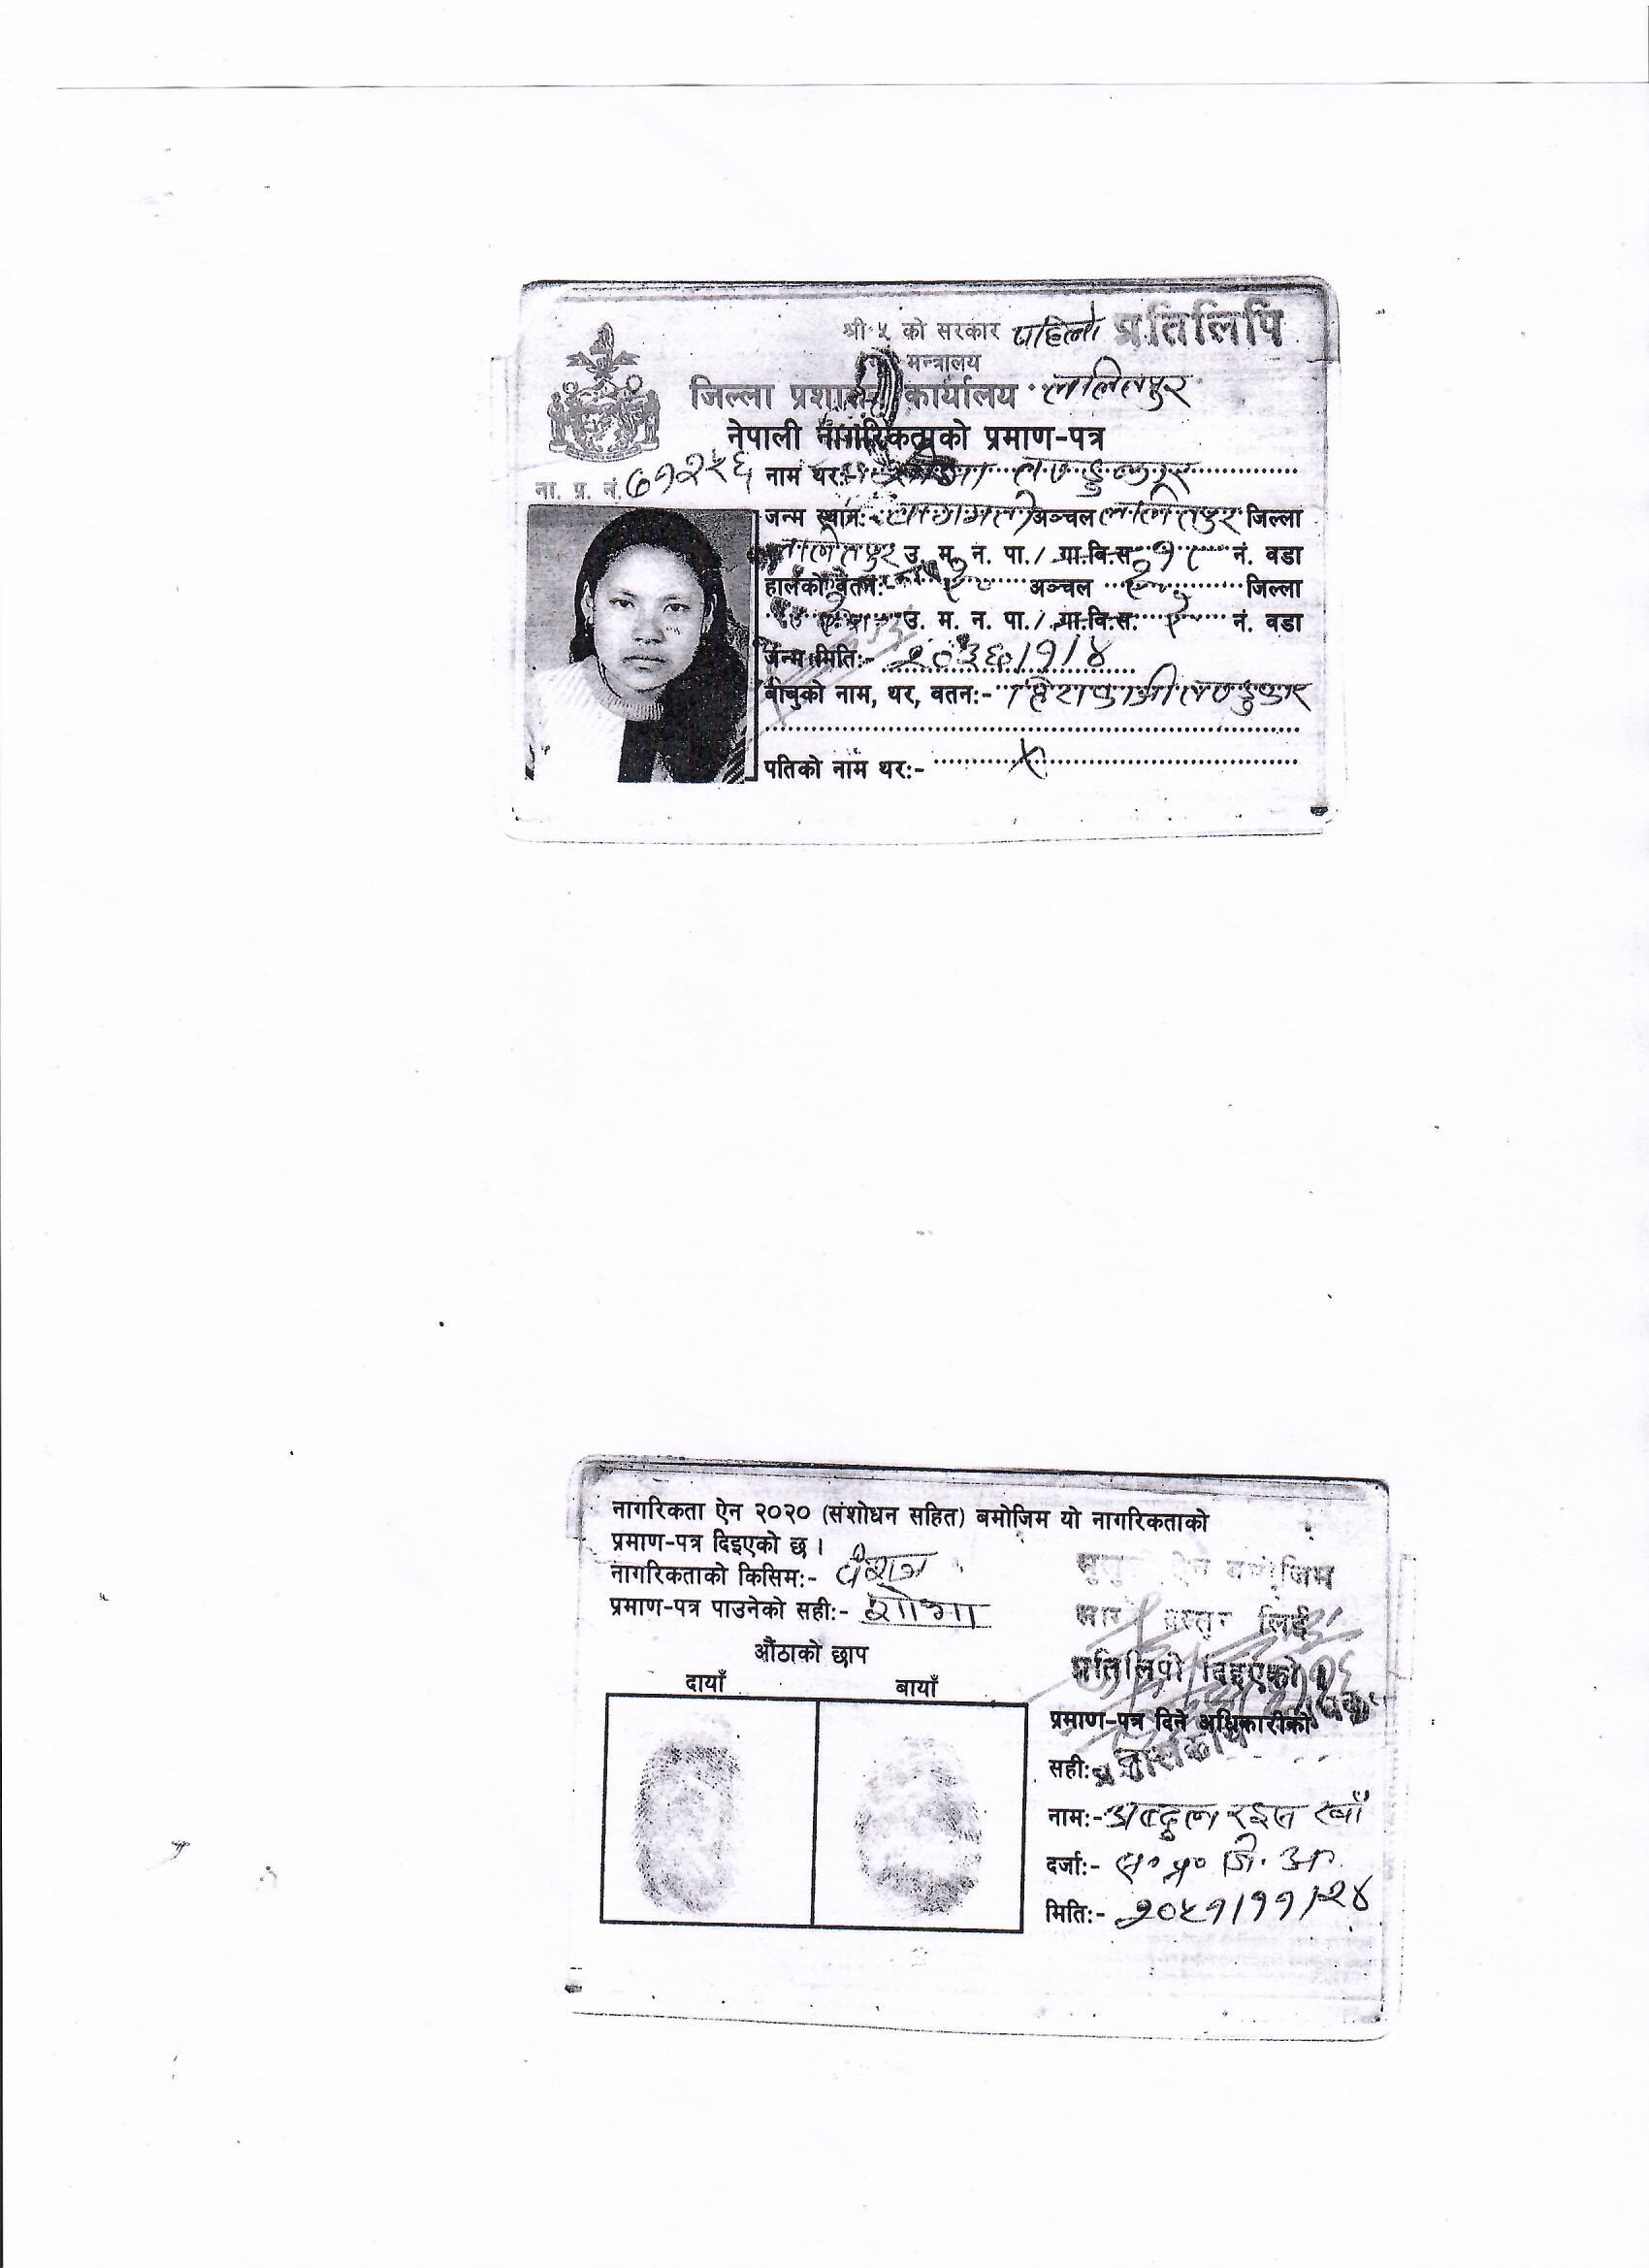 श्री ५ को सरकार पहिलो प्रतिलिपि
मन्त्रालय
जिल्ला प्रशासन कार्यालय ललितपुर
नेपाली नागरिकताको प्रमाण-पत्र
ना. प्र. नं. ७१२५६ नाम थर:-
जन्म स्थान:- बागमती अञ्चल ललितपुर जिल्ला
ललितपुर उ. म. न. पा./ गा.वि.स. नं. वडा
हालको वतन:- अञ्चल जिल्ला
उ. म. न. पा./ गा.वि.स. नं. वडा
जन्म मिति:- २०३६/१/४
बाबुको नाम, थर, वतन:-
पतिको नाम थर:- X
नागरिकता ऐन २०२० (संशोधन सहित) बमोजिम यो नागरिकताको
प्रमाण-पत्र दिइएको छ ।
नागरिकताको किसिम:- वंशज
प्रमाण-पत्र पाउनेको सही:- शोभा
औंठाको छाप
दायाँ बायाँ
ऐन बमोजिम
लिई
प्रतिलिपी दिइएको ।
प्रमाण-पत्र दिने अधिकारीको
सही:-
नाम:- अब्दुल रइस खाँ
दर्जा:- स० प्र० जि. अ.
मिति:- २०५१/११/२४